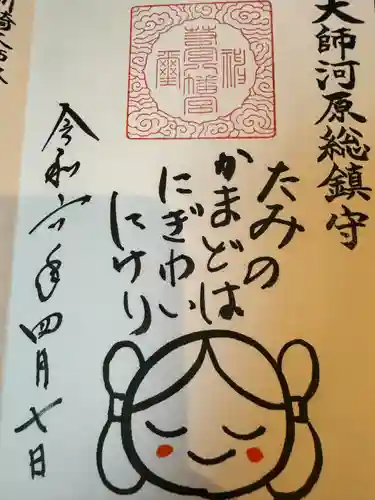 大師河原総鎮守
たみの
かまどは
にぎわい
にけり
令和六年四月七日